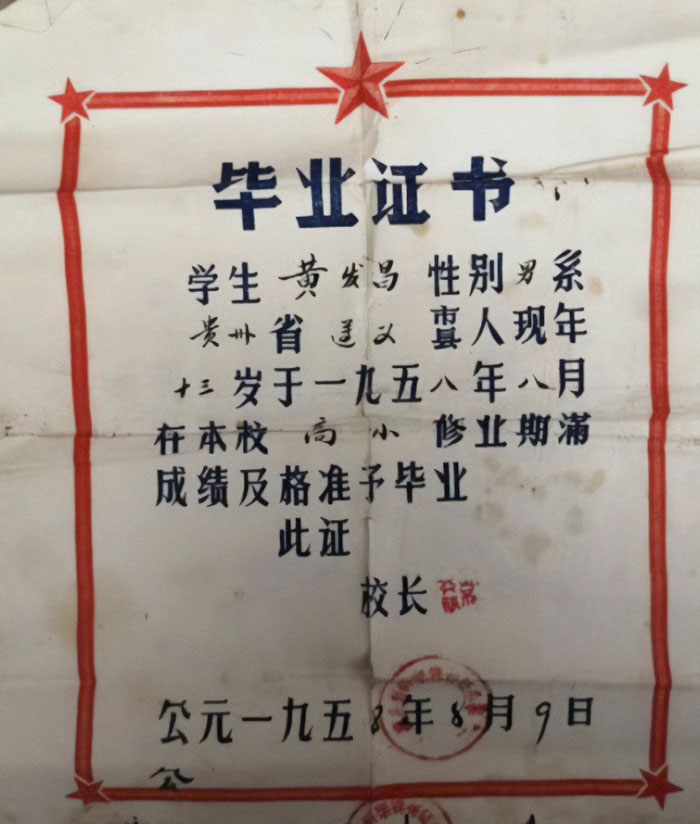 毕业证书
学生 黄发昌 性别 男 系
贵州 省 遵义 市县 人 现年
十三 岁 于 一九五八年八月
在本校 高小 修业期满
成绩及格准予毕业
此证
校长
公元一九五8年8月9日
公